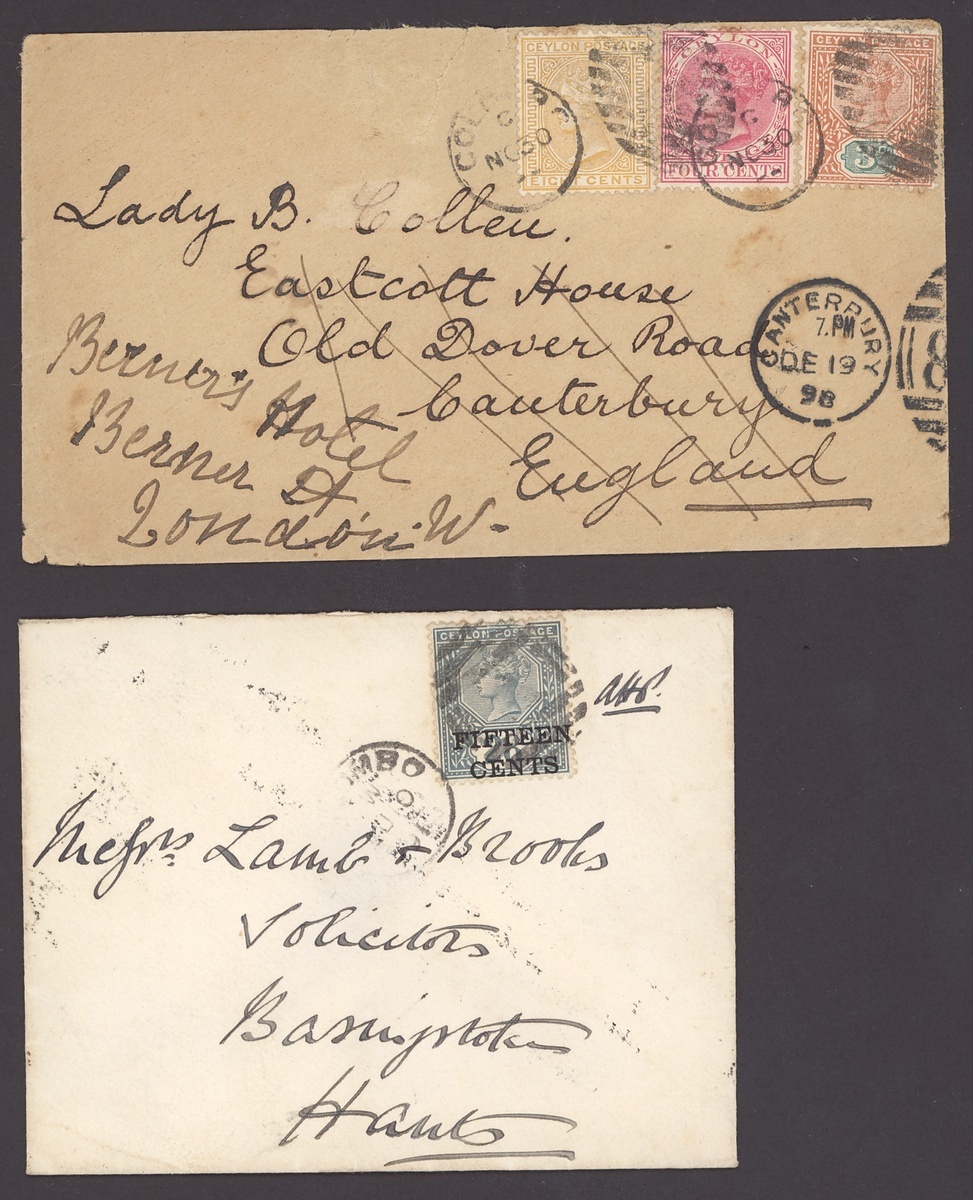 CEYLON POSTAGE
EIGHT CENTS
CEYLON
FOUR CENTS
CEYLON POSTAGE
3
NO 30
NO 30
Lady B. Collen.
Eastcott House
Old Dover Road
Canterbury
England
CANTERBURY
7. PM
DE 19
98
8
Berners Hotel
Berner St.
London. W.
CEYLON POSTAGE
FIFTEEN
CENTS
OMBO
Messrs Lamb & Brooks
Solicitors
Basingstoke
Hants